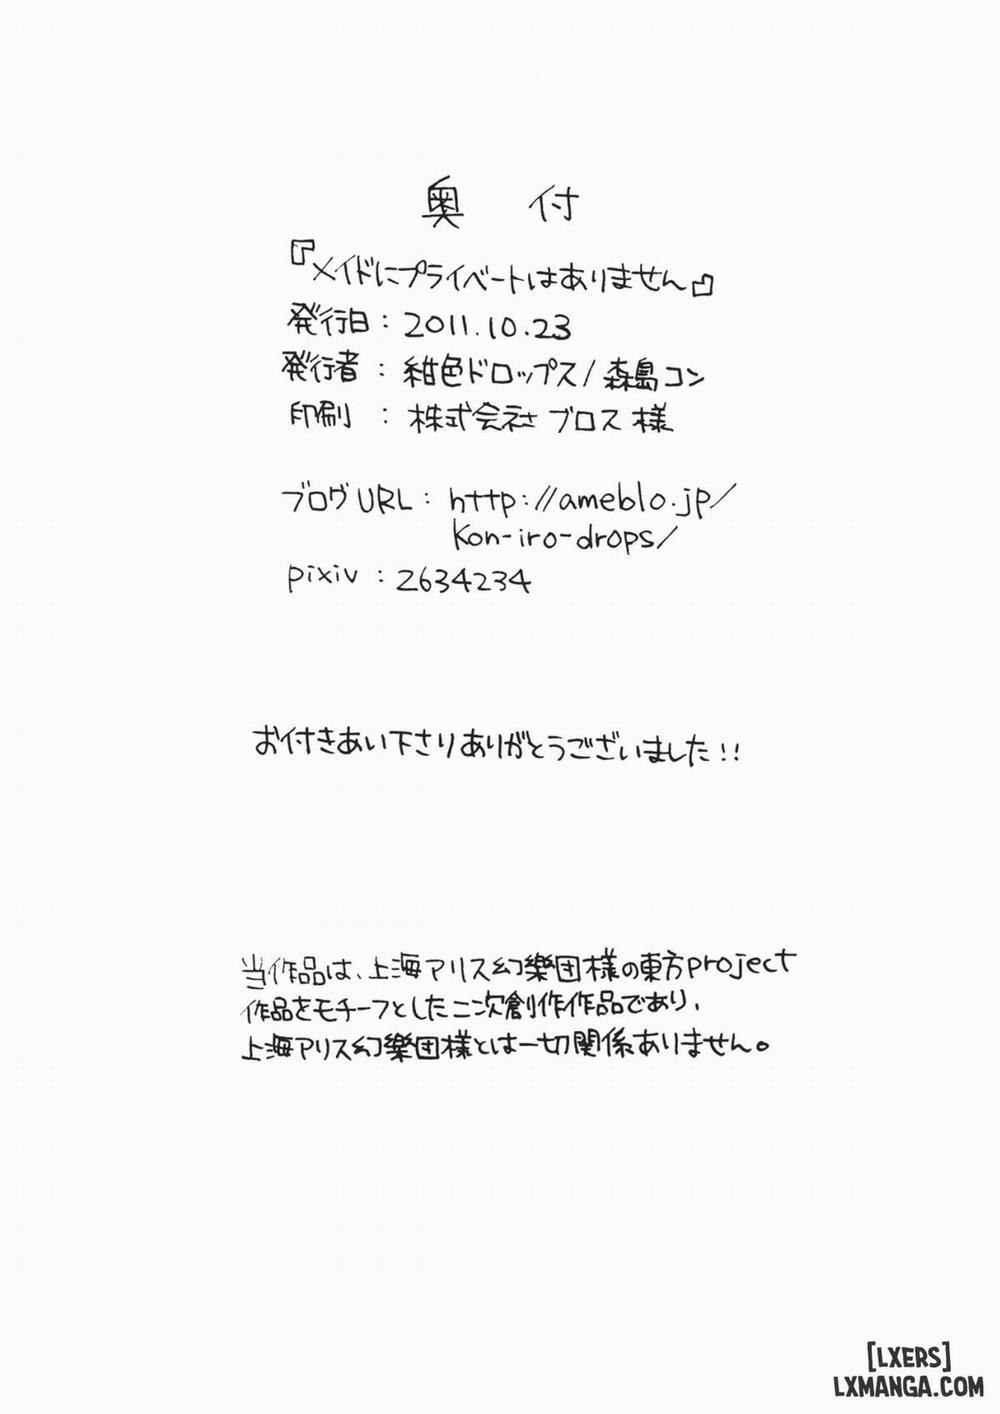 奥付
『メイドにプライベートはありません』
発行日：2011.10.23
発行者：紺色ドロップス/森島コン
印刷：株式会社ブロス様
ブログURL：http://ameblo.jp/
kon-iro-drops/
pixiv：2634234
お付きあい下さりありがとうございました!!
当作品は、上海アリス幻樂団様の東方project
作品をモチーフとした二次創作作品であり、
上海アリス幻樂団様とは一切関係ありません。
[LXERS]
LXMANGA.COM